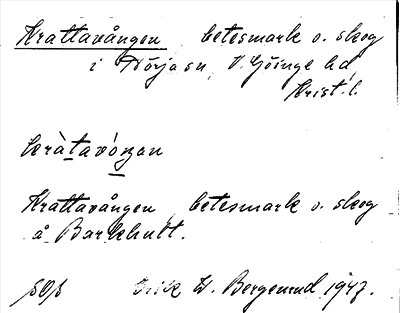 Krattavången betesmark o. skog
i Nörja sn, V. Göinge hd,
Krist. l.
kràtavóŋan
Krattavången, betesmark o. skog
å Barkhult.
Erik W. Bergenrud 1947.